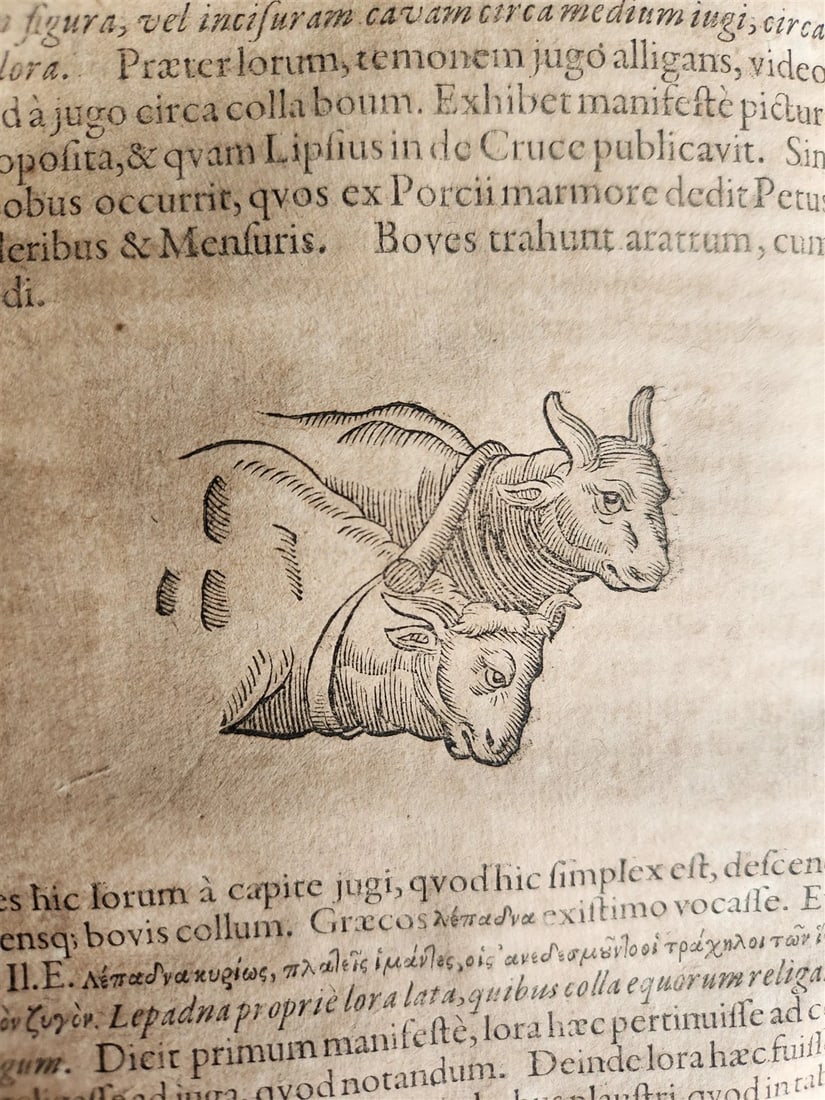 figura, vel inciſuram cavam circa medium iugi, circa
lora. Præter lorum, temonem jugo alligans, video
d à jugo circa colla boum. Exhibet manifeſtè pictur
opoſita, & qvam Lipſius in de Cruce publicavit. Sin
obus occurrit, qvos ex Porcii marmore dedit Petus
leribus & Menſuris. Boves trahunt aratrum, cum
di.
es hic lorum à capite jugi, qvod hic ſimplex eſt, deſcen
ensq; bovis collum. Græcos λέπαδνα exiſtimo vocaſſe. E
Il.E. Λέπαδνα κυρίως, πλατεῖς ἱμάντες, οἷς ἀνεδεσμοῦντο οἱ τράχηλοι τῶν ἵ
ὸν ζυγόν. Lepadna propriè lora lata, quibus colla equorum religa
gum. Dicit primum manifeſtè, lora hæc pertinuiſſe ad c
ad juga, qvod notandum. Deinde lora hæc fuiſſ
plauſtri, qvod in tab